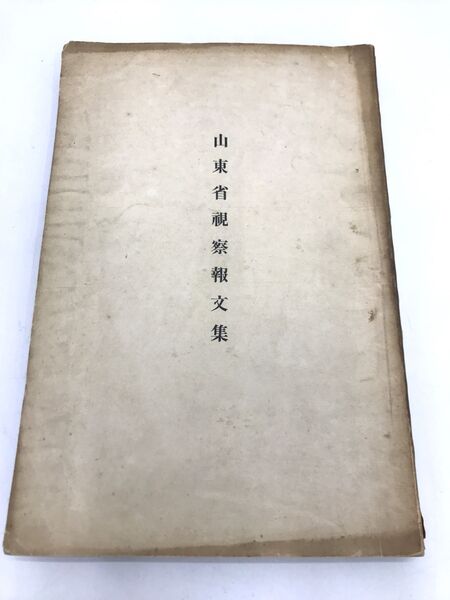 山東省視察報文集